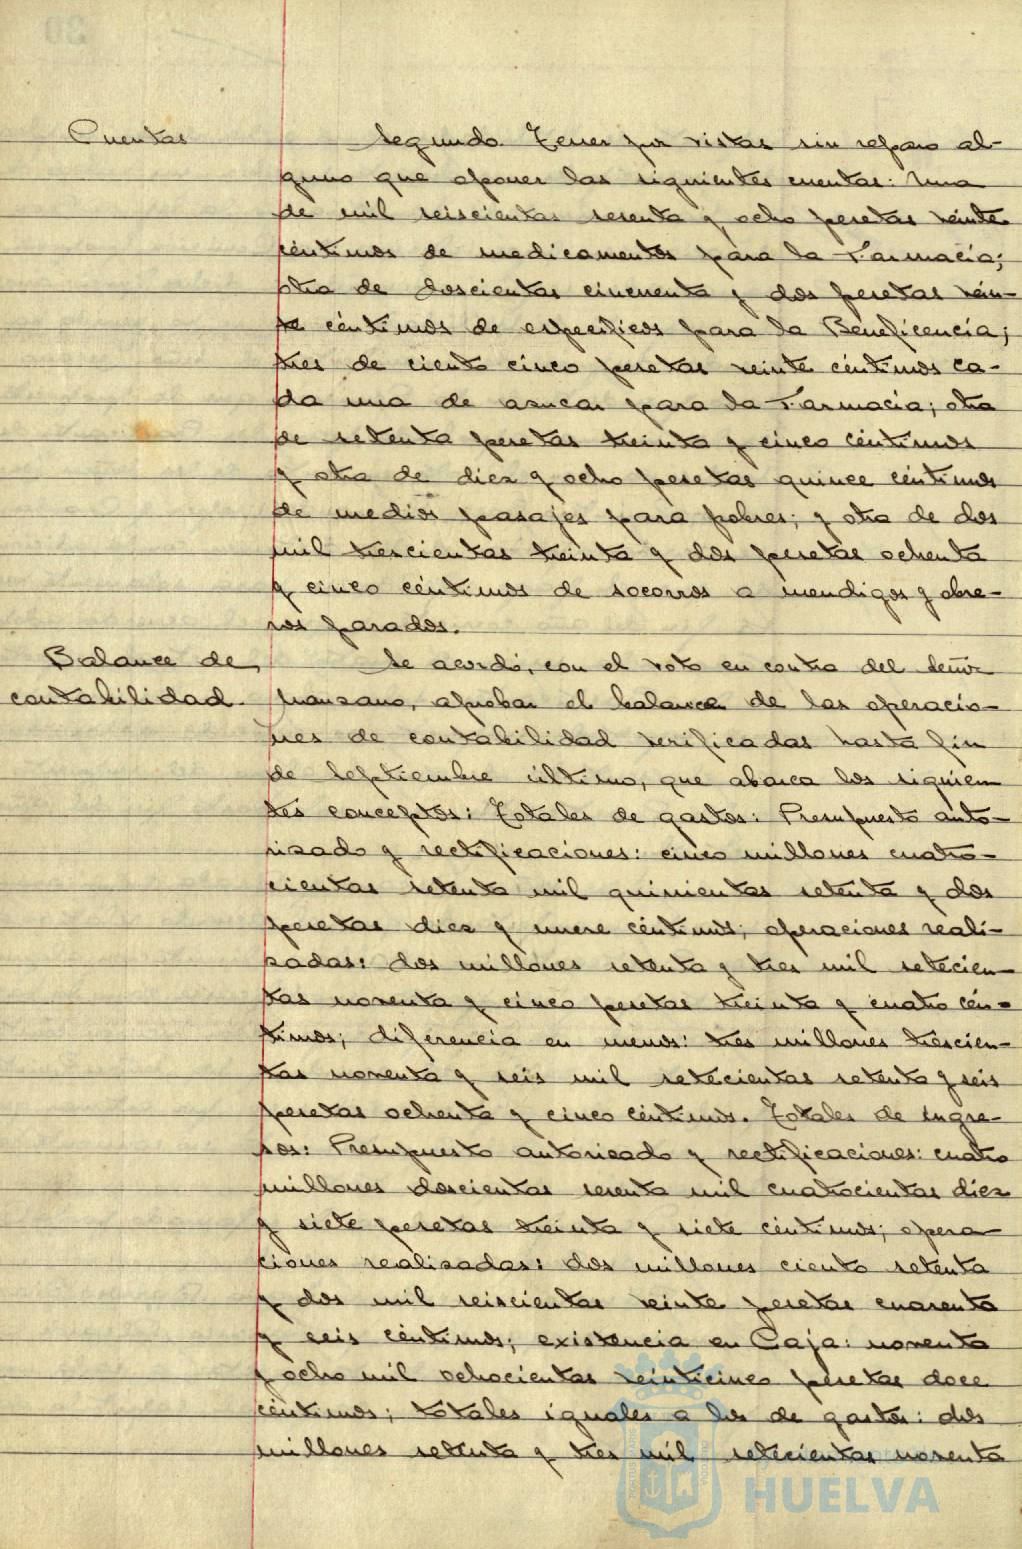 Cuentas
Segundo. Tener por vistas sin reparo al-
guno que oponer las siguientes cuentas: Una
de mil seiscientas sesenta y ocho pesetas veinte
céntimos de medicamentos para la Farmacia;
otra de doscientas cincuenta y dos pesetas vein-
te céntimos de específicos para la Beneficencia;
tres de ciento cinco pesetas veinte céntimos ca-
da una de azucar para la Farmacia; otra
de setenta pesetas treinta y cinco céntimos
y otra de diez y ocho pesetas quince céntimos
de medios pasajes para pobres; y otra de dos
mil trescientas treinta y dos pesetas ochenta
y cinco céntimos de socorros a mendigos y obre-
ros parados.
Balance de
contabilidad.
Se acordó, con el voto en contra del Señor
Manzano, aprobar el balance de las operacio-
nes de contabilidad verificadas hasta fin
de Septiembre último, que abarca los siguien
tes conceptos: Totales de gastos: Presupuesto auto-
rizado y rectificaciones: cinco millones cuatro-
cientas setenta mil quinientas setenta y dos
pesetas diez y nueve céntimos; operaciones reali-
zadas: dos millones setenta y tres mil setecien-
tas noventa y cinco pesetas treinta y cuatro cén-
timos; diferencia en menos: tres millones trescien-
tas noventa y seis mil setecientas setenta y seis
pesetas ochenta y cinco céntimos. Totales de Ingre-
sos: Presupuesto autorizado y rectificaciones: cuatro
millones doscientas sesenta mil cuatrocientas diez
y siete pesetas treinta y siete céntimos; opera-
ciones realizadas: dos millones ciento setenta
y dos mil seiscientas veinte pesetas cuarenta
y seis céntimos; existencia en Caja: noventa
y ocho mil ochocientas veinticinco pesetas doce
céntimos; totales iguales a los de gastos: dos
millones setenta y tres mil setecientas noventa
HUELVA